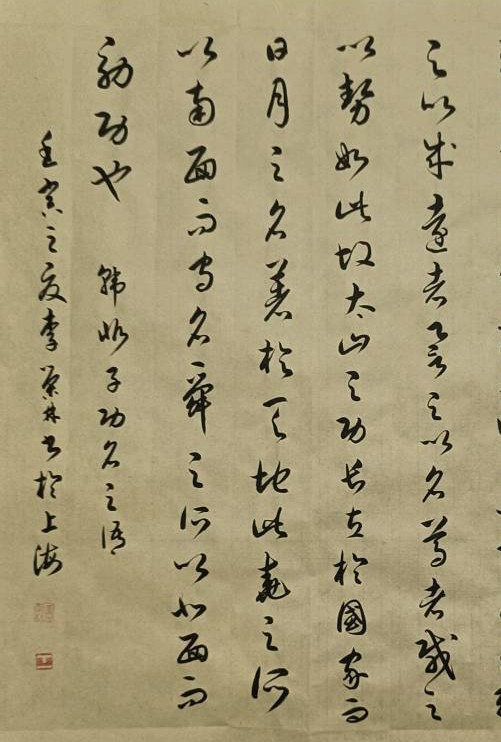 之以成遠者譽之以名尊者載之
以勢如此故太山之功長立於國家而
日月之名著於天地此堯之所
以南面而守名舜之所以北面而
効功也 韓非子功名之語
壬寅之夏李榮林書於上海